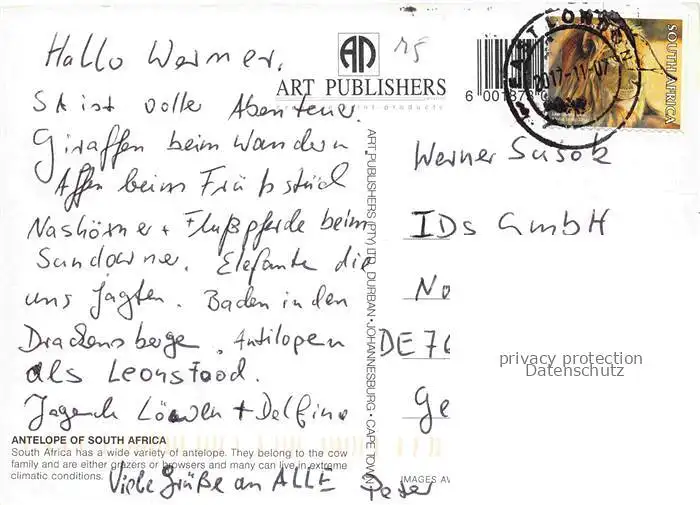 Hallo Werner,
SA ist voller Abenteuer.
Giraffen beim Wandern
Affen beim Frühstück
Nashörner + Flußpferde beim
Sundowner. Elefanten die
uns jagten. Baden in den
Drackensberge. Antilopen
als Leonsfood.
Jagende Löwen + Delfine
Viele Grüße an ALLE Peter
ANTELOPE OF SOUTH AFRICA
South Africa has a wide variety of antelope. They belong to the cow
family and are either grazers or browsers and many can live in extreme
climatic conditions.
AP
ART PUBLISHERS
ART PUBLISHERS (PTY) LTD. DURBAN • JOHANNESBURG • CAPE TOWN
6 001878
2017-11-07
SOUTH AFRICA
Werner Susok
IDS GmbH
No
DE 76
Ge
privacy protection
Datenschutz
IMAGES AV